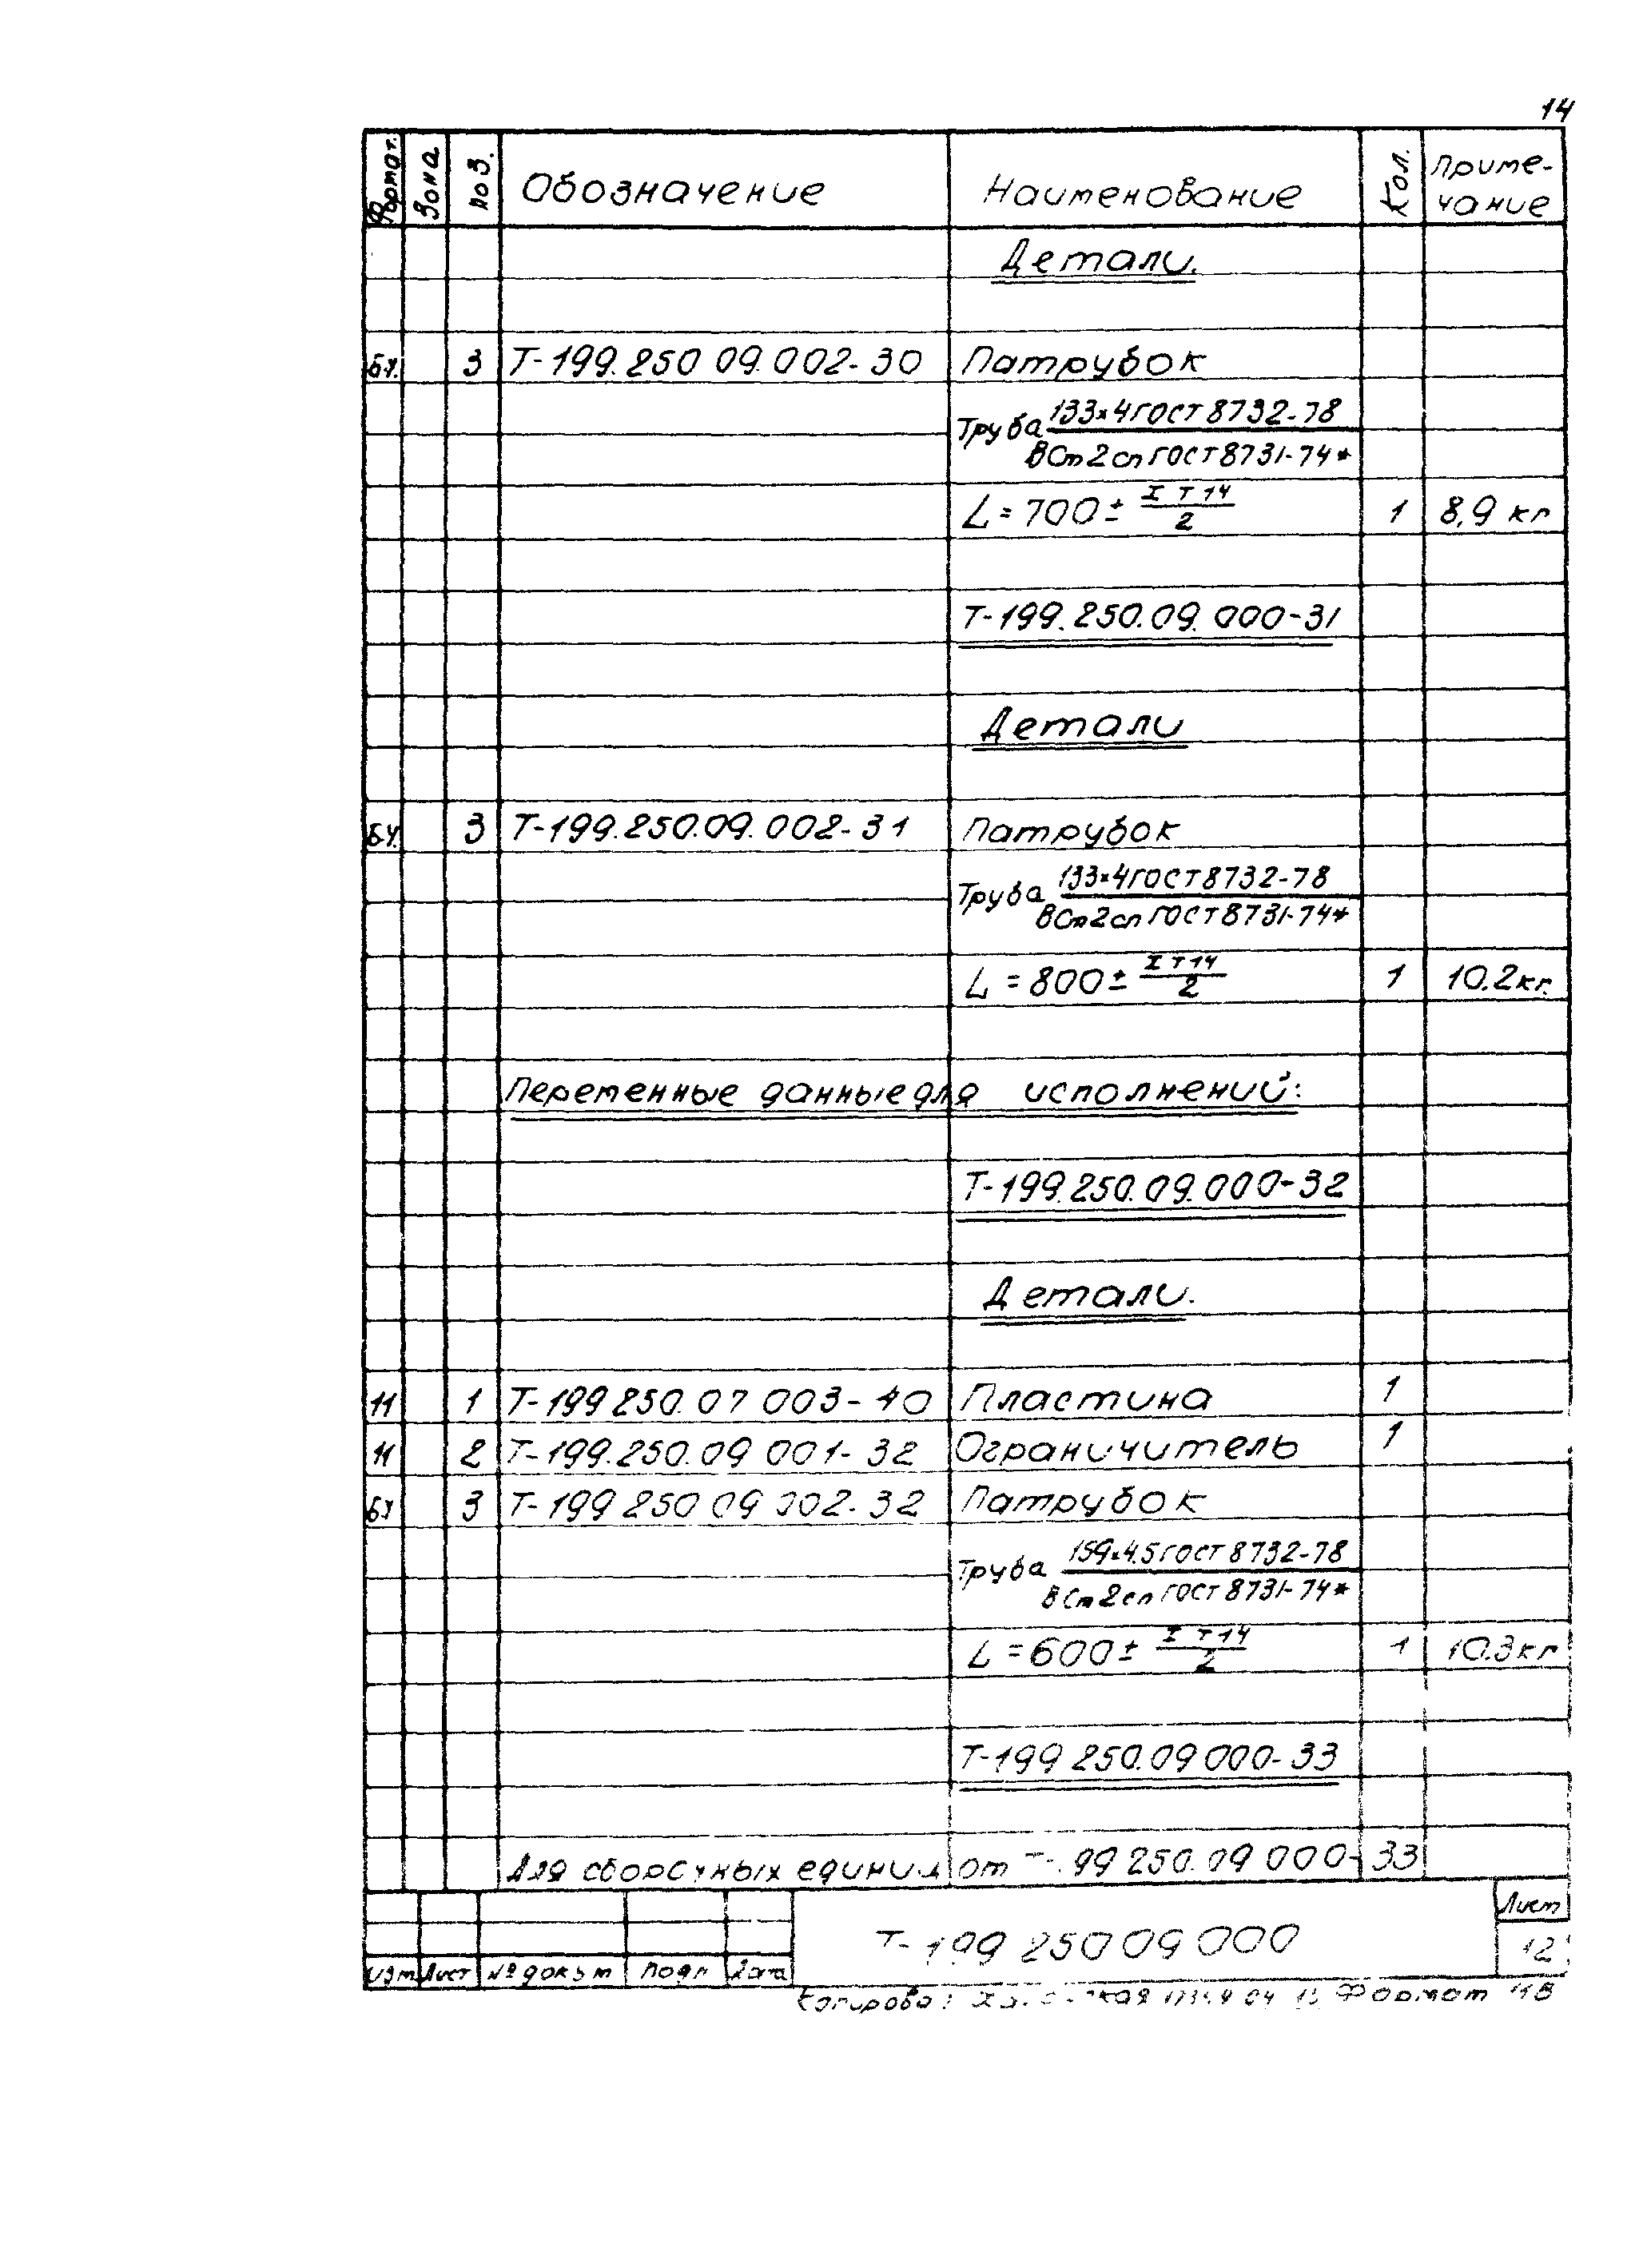 14
Формат. Зона Поз. Обозначение Наименование Кол. Приме-
чание
Детали.
БЧ. 3 Т-199.250 09.002-30 Патрубок
Труба 133×4 ГОСТ 8732-78
ВСт2сп ГОСТ 8731-74*
L = 700 ± IT14/2 1 8,9 кг
Т-199.250.09.000-31
Детали
БЧ. 3 Т-199.250.09.002-31 Патрубок
Труба 133×4 ГОСТ 8732-78
ВСт2сп ГОСТ 8731-74*
L = 800 ± IT14/2 1 10.2 кг.
Переменные данные для исполнений:
Т-199.250.09.000-32
Детали.
11 1 Т-199 250.07 003-40 Пластина 1
11 2 Т-199.250.09 001-32 Ограничитель 1
БЧ 3 Т-199 250 09 002-32 Патрубок
Труба 159×4.5 ГОСТ 8732-78
ВСт2сп ГОСТ 8731-74*
L = 600 ± IT14/2 1 10.3 кг
Т-199 250.09 000-33
Для сборочных единиц от 250.09 000-33
Лист
Т-199 250 09 000
12
Изм Лист № докум Подп Дата
Формат 11В